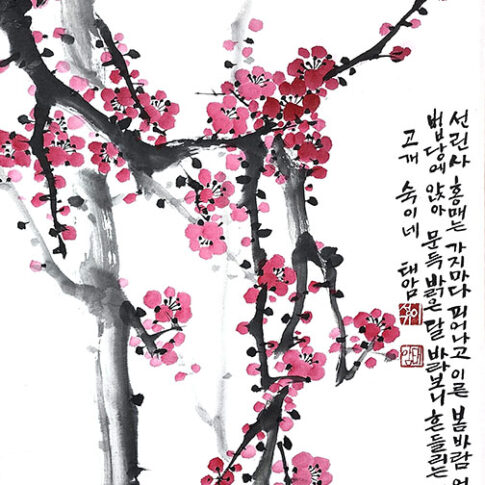 선린사 홍매는 가지마다 피어나고 이른 봄바람
법당에 앉아 문득 밝은 달 바라보니 흔들리는
고개 숙이네 태암